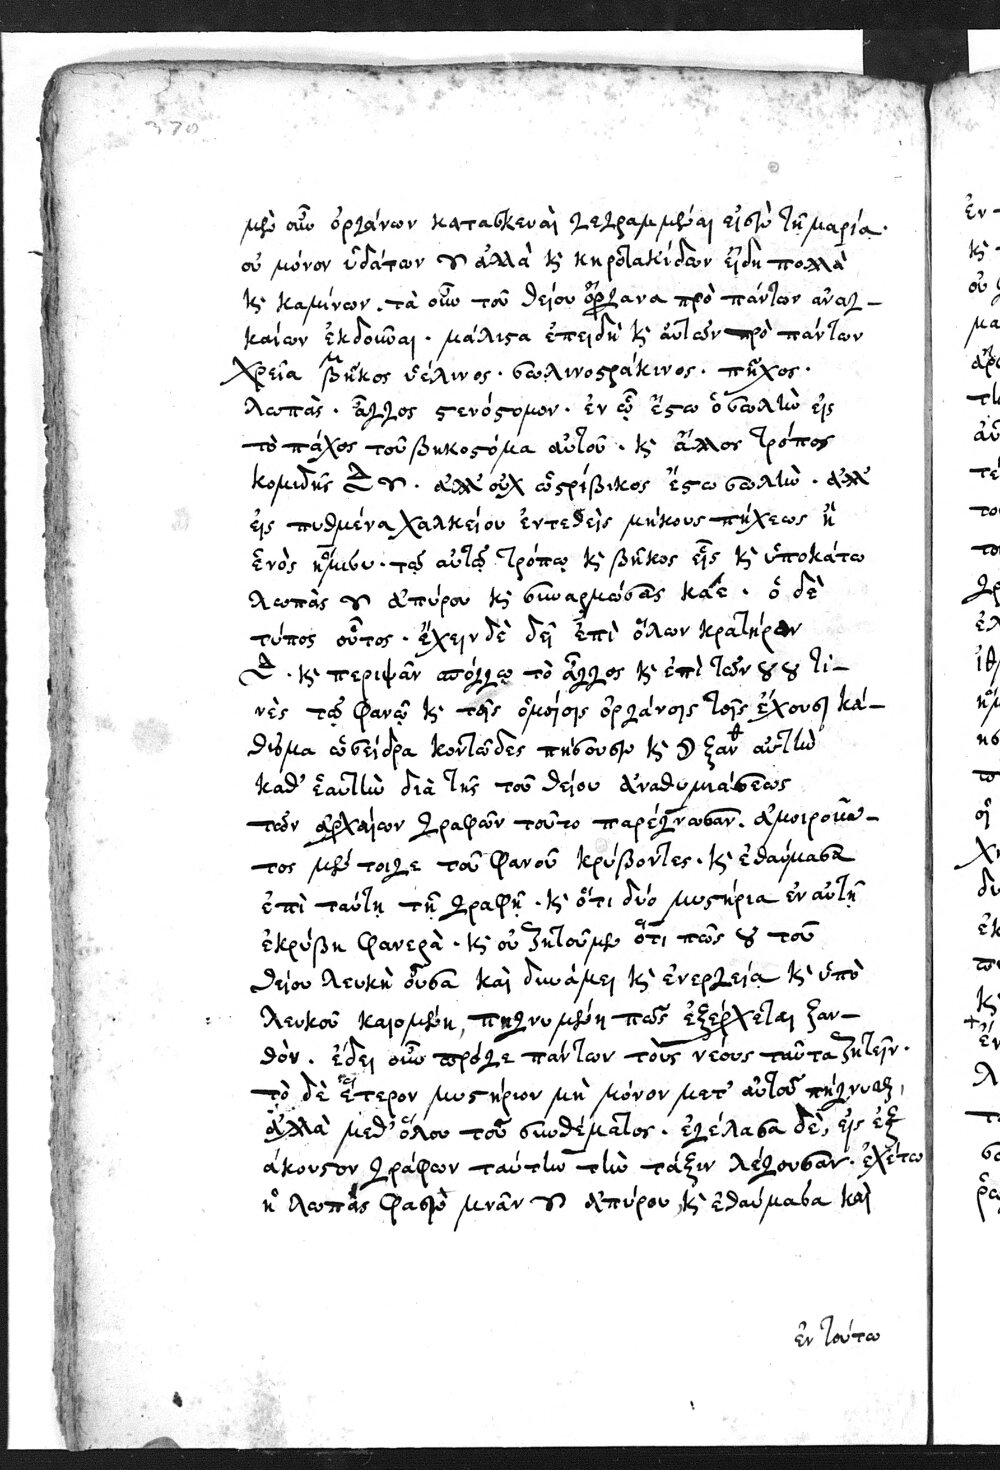 370
μὲν οὖν ὀργάνων κατασκευαὶ γεγραμμέναι εἰσὶν τῇ μαρία.
οὐ μόνον ὑδάτων ἀλλὰ κ̀ κηροτακίδων εἴδη πολλὰ
κ̀ καμίνων. τὰ οὖν τοῦ θείου ὄργανα πρὸ πάντων ἀναγ–
καίων ἐκδοῦναι. μάλιςα ἐπειδὴ κ̀ αὐτῶν πρὸ πάντων
χρεῖα βῆκος ὑέλινος. σωλινοςράκινος. πῆχος.
λωπὰς. ἄγγος ςενόςομον. ἐν ᾧ ἔςω ὁ σωλὴν εἰς
τὸ πάχος τοῦ βηκοςόμα αὐτοῦ. κ̀ ἄλλος τρόπος
κομιδῆς. ἀλλ' οὐχ ὡς ρίβικος ἔςω σωλὴν. ἀλλ'
εἰς πυθμένα χαλκείου ἐντεθεὶς μήκους πήχεως ἢ
ἑνὸς ἥμισυ. τῷ αὐτῷ τρόπῳ κ̀ βῆκος εἷς κ̀ ὑποκάτω
λωπὰς ἀπύρου κ̀ συναρμόσας καῖε. ὁ δὲ
τύπος οὗτος. ἔχειν δὲ δεῖ ἐπὶ ὅλων κρατήραν
κ̀ περιψᾶν σπόγγῳ τὸ ἄγγος κ̀ ἐπὶ τῶν τι–
νὲς τῷ φανῷ κ̀ τοῖς ὁμοίοις ὀργάνοις τοῖς ἔχουσι κά–
θισμα ὡσείδρα κοντῶδες πήσουσιν κ̀ ξανθ αὐτὴν
καθ' ἑαυτὴν διὰ τῆς τοῦ θείου ἀναθυμιάσεως
τῶν ἀρχαίων γραφῶν τοῦτο παρέγνωσαν. ἀμοιροῦν–
τος μέν τοιγε τοῦ φανοῦ κρύβοντες. κ̀ ἐθαύμασα
ἐπὶ ταύτῃ τῇ γραφῇ. κ̀ ὅτι δύο μυςήρια ἐν αὐτῇ
ἐκρύβη φανερὰ. κ̀ οὐ ζητοῦμεν ὅτι πῶς τοῦ
θείου λευκὴ οὖσα καὶ δυνάμει κ̀ ἐνεργεία κ̀ ὑπὸ
λευκοῦ καιομένη, πηγνυμένη πῶς ἐξέρχεται ξαν–
θὸν. ἔδει οὖν πρόγε πάντων τοὺς νέους ταῦτα ζητεῖν.
τὸ δὲ ἕτερον μυςήριον μὴ μόνον μετ' αὐτοῦ πήγνυται,
ἀλλὰ μεθ' ὅλου τοῦ συνθέματος. ἐγέλασα δὲ, εἰς ἐξ
άκουςον γράφων ταύτην τὴν τάξιν λέγουσαν. ἐχέτω
ἡ λωπὰς φασὶν μνᾶν ἀπύρου, κ̀ ἐθαύμασα καὶ
ἐν τούτω